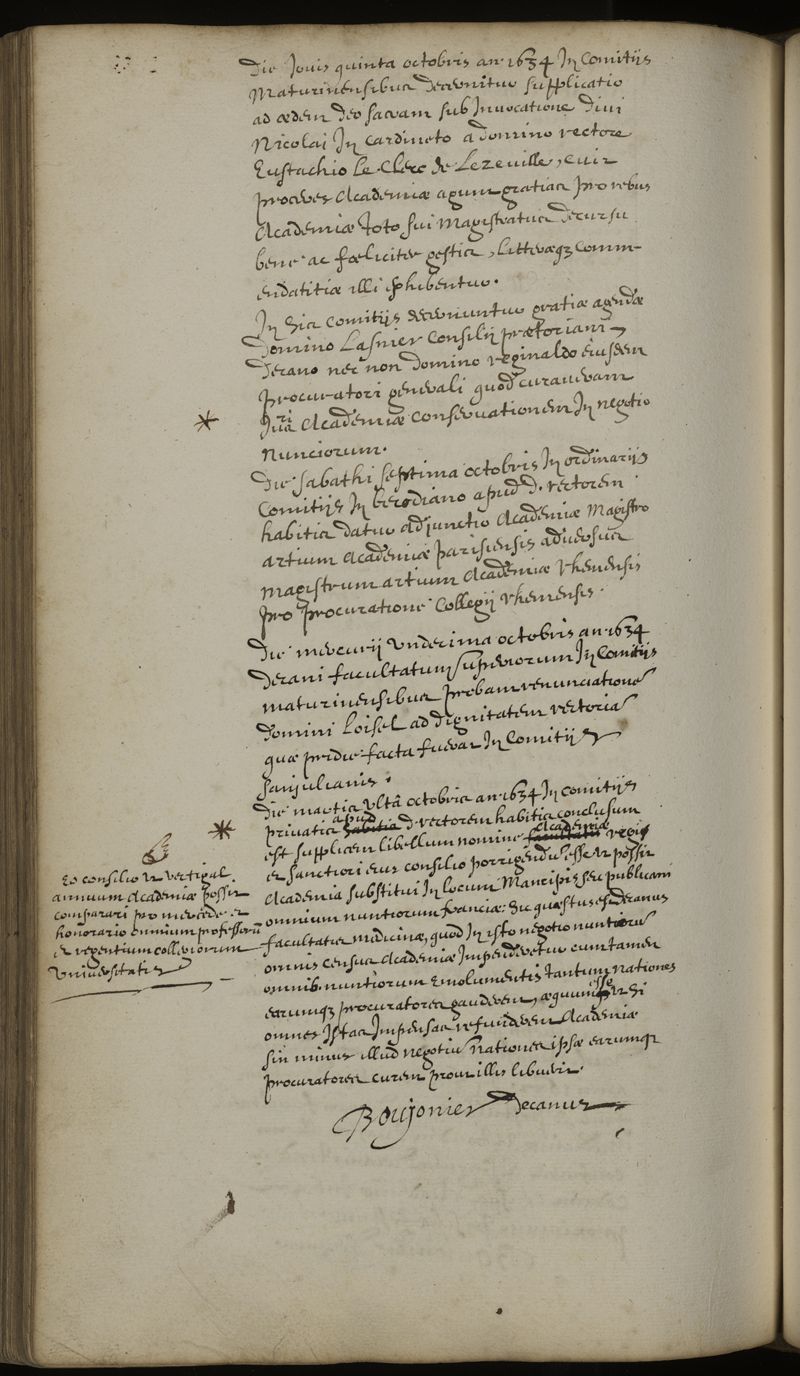 Die Jovis quinta octobris an. 1634 In Comitijs
Maturinensibus decernitur supplicatio
ad ædem deo sacram sub Invocatione Divi
Nicolai In Cardineto a domino rectore
Eustachio Le Clerc de Lezeville, cui
proceres Academiæ agunt gratias pro rebus
Academiæ toto sui Magistratus decursu
bene ac fœliciter gestis, litteræq; comm-
endatitiæ illi exhibentur.
In his Comitijs decernuntur gratiæ agendæ
Domino Lasnier Consilij prætoriani
decano nec non Domino reginaldo eiusdem
procuratori generali quod curaverant
Jurium Academiæ conservationem In negotio
Nunciorum.
Die sabathi septima octobris In ordinarijs
Comitijs In becodiano apud D. rectorem
habitis datur adjunctio Academiæ Magistro
artium Academiæ parisiensis adversus
magistrum artium Academiæ rhemensis
pro procuratione Collegij rhemensis.
Die mercurij Undecima octobris an. 1634
Decani facultatum superiorum In Comitijs
maturinensibus probant renunciationē
domini Loisel ad dignitatem rectoriā
quæ pridie facta fuerat In Comitijs
sanjulianis.
Die martis ultâ octobris an. 1634 In comitijs
privatis apud habitis D. rectorem habitis conclusum
est supplicem libellum nomine Academiæ facultatis regi
et sanctiori eius consilio porrigendū esse ut possit
Academia substitui In locum Mancipis seu publicani
omnium nuntiorum franciæ: Sic quæstus est decanus
facultatis medicinæ, quod In isto negotio nuntiorū
omnis census Academiæ Impenderetur cum tamen
omnib. nuntiorum emolumentis tantum Nationes
earumq; procuratores gauderent, æquum esse ut hi
omnes istas Impensas refunderent Academiæ
sin minus illud negotiū Nationes ipsæ earumq;
procuratores curent prout illis libuerit.
Boujonier Decanus
Eo consilio ut vectigal
annuum Academiæ possit
comparari pro mercede et
honorario omnium professorū
et regentium collegiorum
Universitatis